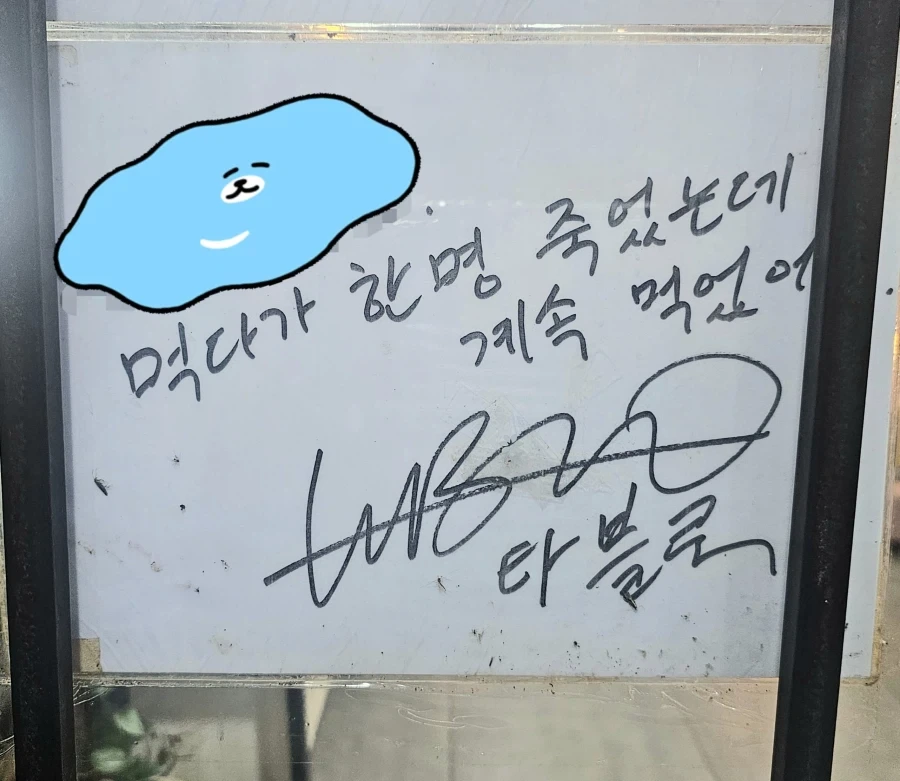 먹다가 한명 죽었는데
계속 먹었어
타블로